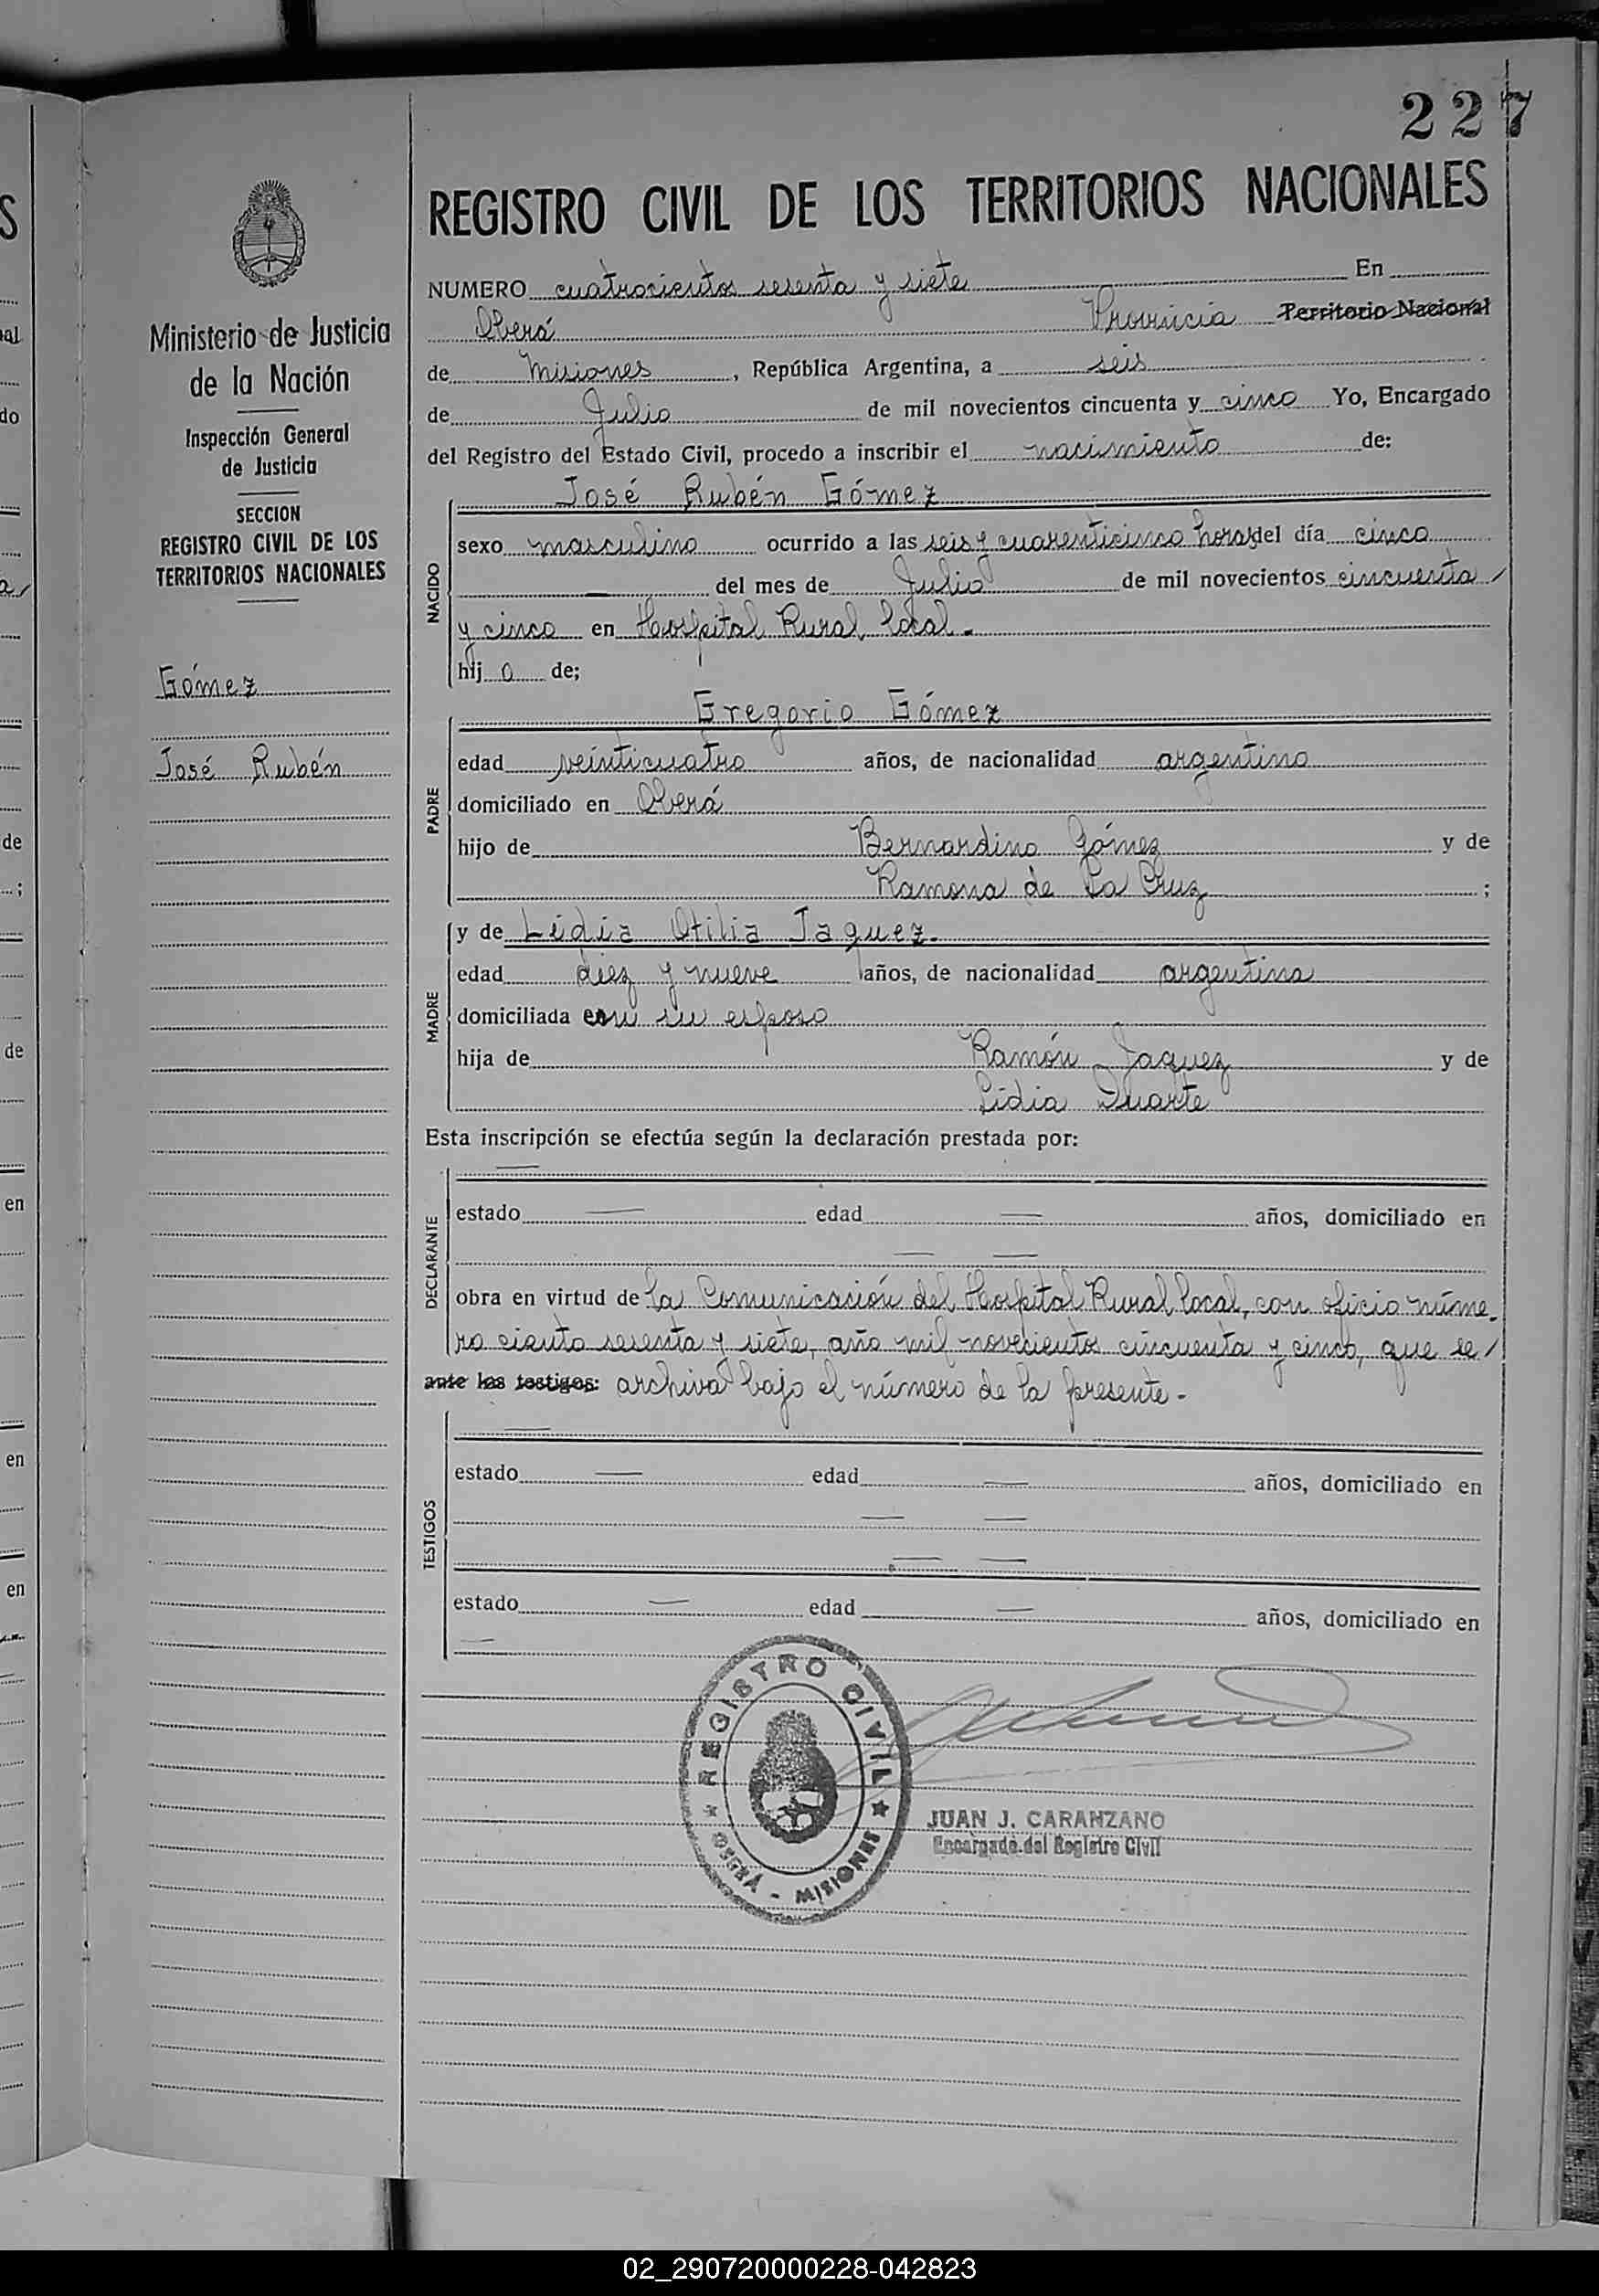 227
REGISTRO CIVIL DE LOS TERRITORIOS NACIONALES
Ministerio de Justicia
de la Nación
Inspección General
de Justicia
SECCION
REGISTRO CIVIL DE LOS
TERRITORIOS NACIONALES
Gómez
José Rubén
NUMERO cuatrocientos sesenta y siete En
Oberá Provincia Territorio Nacional
de Misiones, República Argentina, a seis
de Julio de mil novecientos cincuenta y cinco Yo, Encargado
del Registro del Estado Civil, procedo a inscribir el nacimiento de:
José Rubén Gómez
NACIDO
sexo masculino ocurrido a las seis y cuarenticinco horas del día cinco
— del mes de Julio de mil novecientos cincuenta
y cinco en Hospital Rural local.
hij o de;
Gregorio Gómez
PADRE
edad veinticuatro años, de nacionalidad argentino
domiciliado en Oberá
hijo de Bernardino Gómez y de
Ramona de La Cruz ;
y de Lidia Otilia Jaquez.
MADRE
edad diez y nueve años, de nacionalidad argentina
domiciliada con su esposo
hija de Ramón Jaquez y de
Lidia Duarte
Esta inscripción se efectúa según la declaración prestada por:
—
DECLARANTE
estado — edad — años, domiciliado en
— —
obra en virtud de la Comunicación del Hospital Rural local, con oficio núme-
ro ciento sesenta y siete, año mil novecientos cincuenta y cinco, que se
ante los testigos: archiva bajo el número de la presente-
—
TESTIGOS
estado — edad — años, domiciliado en
— —
— —
estado — edad — años, domiciliado en
—
REGISTRO CIVIL
OBERÁ - MISIONES
JUAN J. CARANZANO
Encargado del Registro Civil
S
al
do
a/
de
;
de
en
en
en
02_290720000228-042823